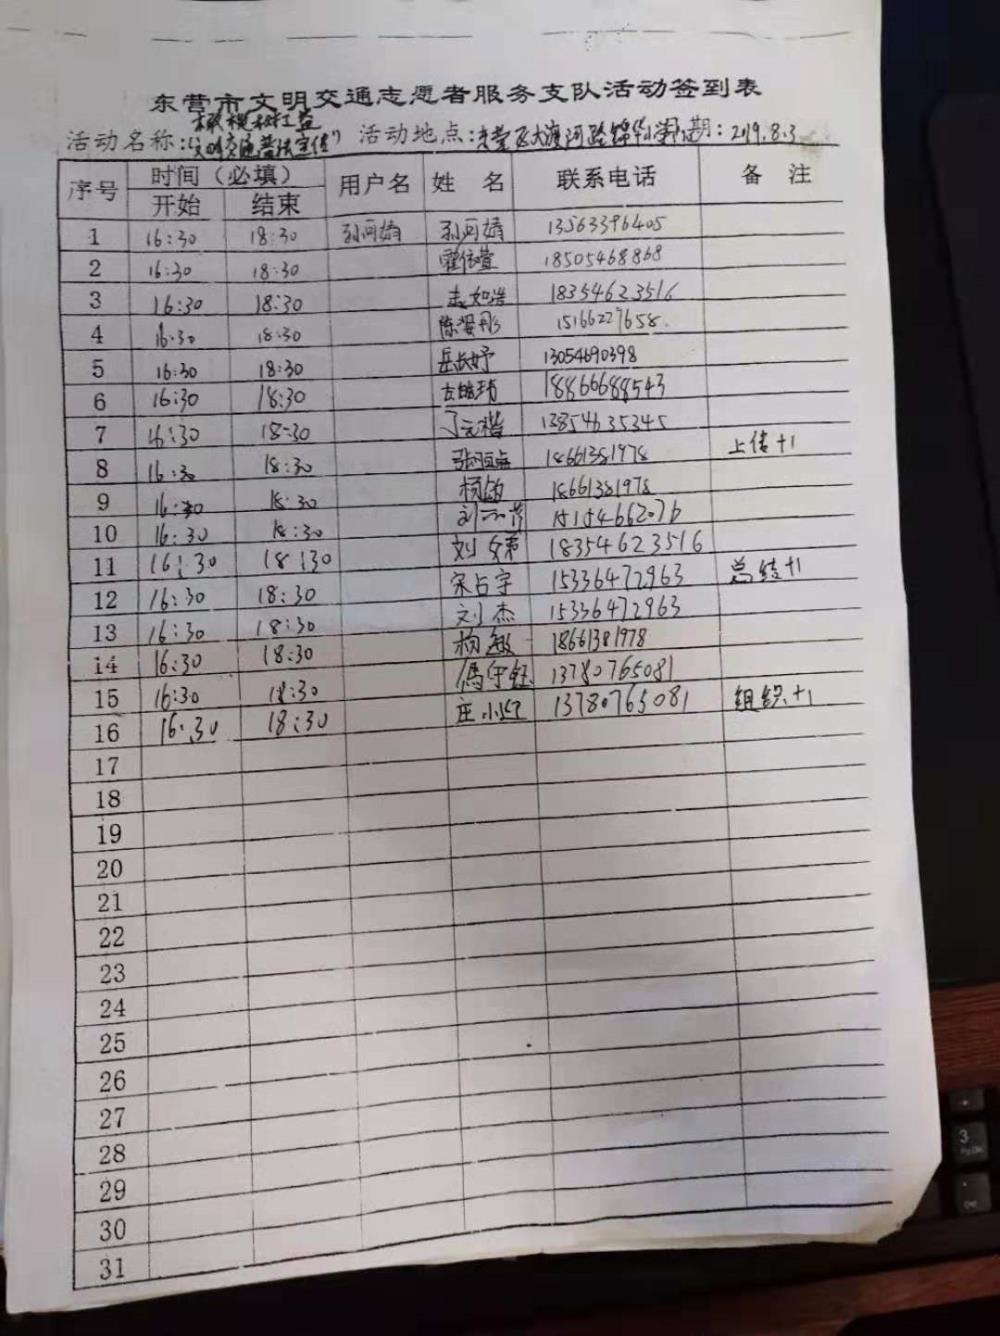 东营市文明交通志愿者服务支队活动签到表
橄榄树红益
活动名称：（文明交通普法宣传） 活动地点：东营区大渡河路锦华 日期：2019.8.3
序号 时间（必填） 用户名 姓 名 联系电话 备 注
开始 结束
1 16:30 18:30 孙可婧 孙可婧 13563396405
2 16:30 18:30 霍依萱 18505468868
3 16:30 18:30 如浩 18354623516
4 16:30 18:30 陈 彤 15166227658
5 16:30 18:30 岳 妤 13054690398
6 16:30 18:30 18866688543
7 16:30 18:30 丁元楷 13854635345
8 16:30 18:30 张 18661381978 上传+1
9 16:30 18:30 杨 18661381978
10 16:30 18:30 刘 15154662076
11 16:30 18:30 刘 18354623516
12 16:30 18:30 宋占宇 15336472963 总结+1
13 16:30 18:30 刘杰 15336472963
14 16:30 18:30 杨敏 18661381978
15 16:30 18:30 馮守鈺 13780765081
16 16:30 18:30 庄小红 13780765081 组织+1
17
18
19
20
21
22
23
24
25
26
27
28
29
30
31
3
PgDn